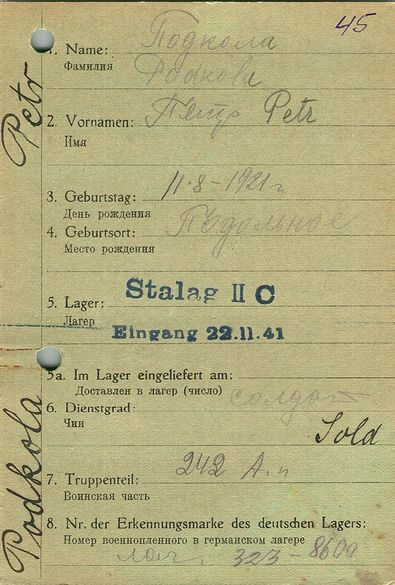 45
Petr
1. Name: Подкола
Фамилия
Podkola
2. Vornamen: Петр Petr
Имя
3. Geburtstag: 11·8-1921 г
День рождения
4. Geburtsort: Подольное
Место рождения
5. Lager: Stalag II C
Лагер
Eingang 22.11.41
5a. Im Lager eingeliefert am:
Доставлен в лагер (число)
6. Dienstgrad: солдат
Чин
Sold
7. Truppenteil: 242 А.п
Воинская часть
8. Nr. der Erkennungsmarke des deutschen Lagers:
Номер военнопленного в германском лагере
323-8600
Podkola